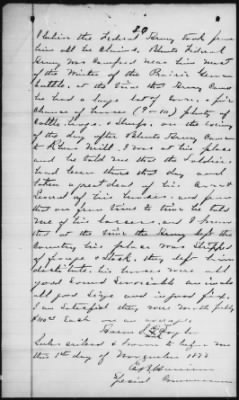 I believe the Federal Army took from
him all he claims. Blunts Federal
Army was camped near him most
of the Winter of the Prairie Grove
battle, at the time the Army came
he had a large lot of corn, a fine
chance of horses (8 or 10) plenty of
cattle, hogs, & sheep, on the evening
of the day after Blunts Army came
to Rheas Mill. I was at his place
and he told me that the Soldiers
had been there that day and
taken a great deal of his
of his fences, and from
that on from time to time he told
me of his losses, and I know
that at the time the Army left the
Country his place was stripped
of forage & stock, they left him
destitute. his horses were all
good sound serviceable animals
all good size and
I am satisfied they were worth fully
$100 Each on an average
Taylor
Subscribed & sworn to before me
this 1st day of November 1872
Special Commissioner